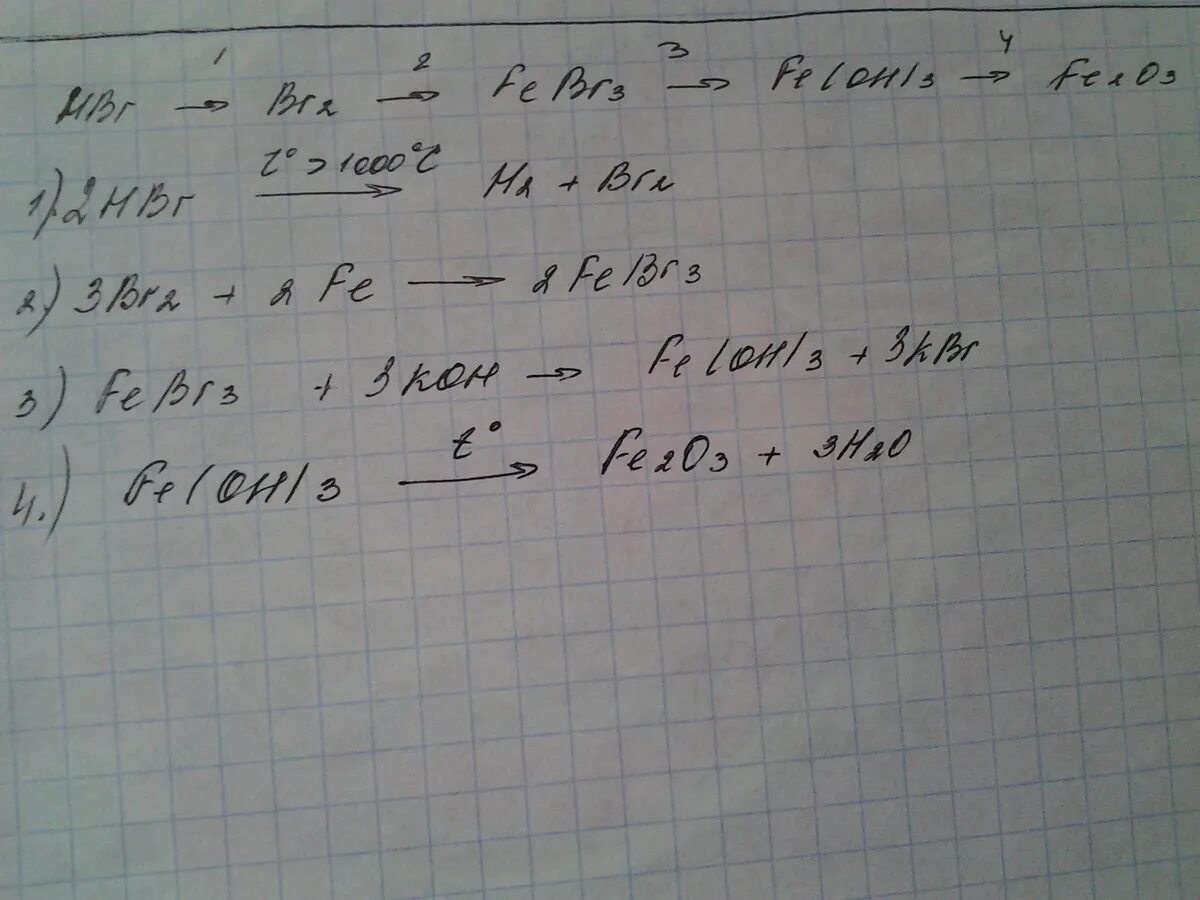 HBr →¹ Br2 →² FeBr3 →³ Fe(OH)3 →⁴ Fe2O3
1). 2HBr → t° > 1000°C H2 + Br2
2) 3Br2 + 2Fe → 2FeBr3
3) FeBr3 + 3KOH → Fe(OH)3 + 3KBr
4.) Fe(OH)3 → t° Fe2O3 + 3H2O